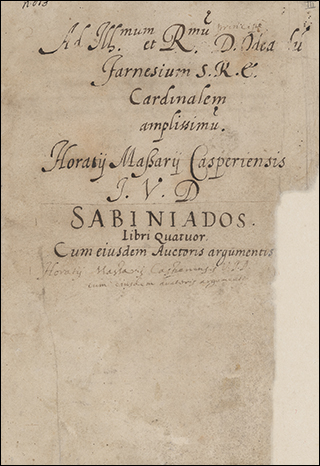 n° 813
Ad Ill.mum et R.mū D. Odea lū
Farnesium S. R. E.
Cardinalem
amplissimū.
Horatij Massarij Casperiensis
I. V. D
SABINIADOS.
Libri Quatuor.
Cum eiusdem Auctoris argumentis
Horatij Massarii
cum eiusdem auctoris argumentis